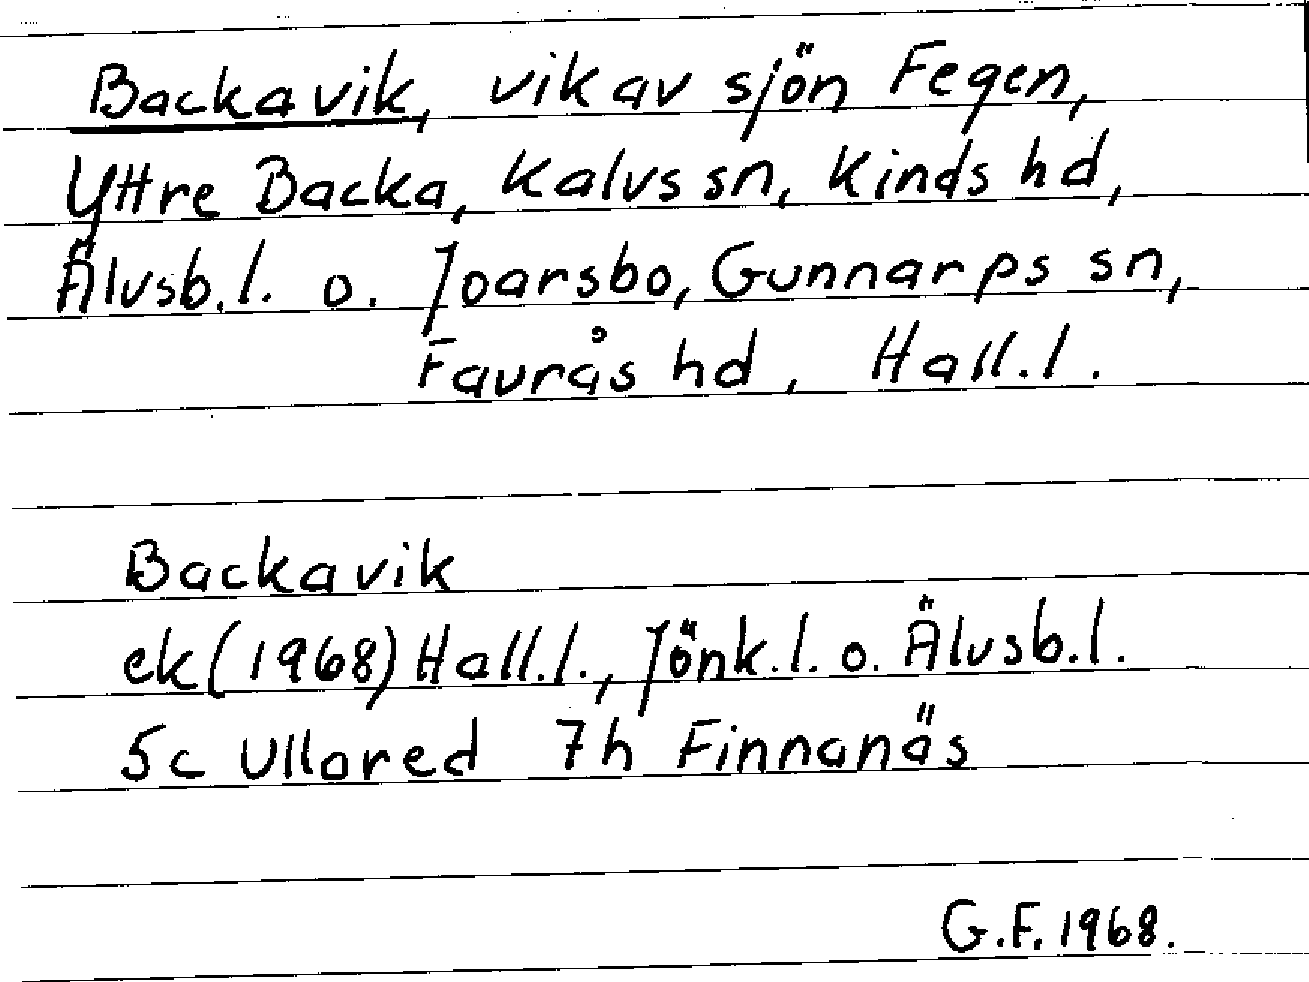 Backavik, vik av sjön Fegen,
Yttre Backa, Kalvs sn, Kinds hd,
Älvsb.l. o. Joarsbo, Gunnarps sn,
Faurås hd, Hall.l.
Backavik
ek (1968) Hall.l., Jönk.l. o. Älvsb.l.
5c Ullared 7h Finnanäs
G.F. 1968.